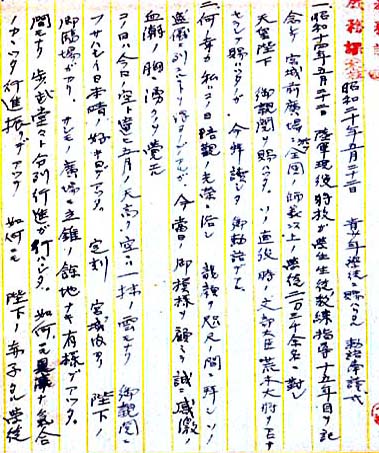 庶務課
昭和二十年五月二十二日 青少年学徒ニ賜ハリタル勅語奉読式
一、昭和十四年五月二十二日 陸軍現役将校学生生徒教練指導十五年目ノ記
念ニ 宮城前広場ニ全国ノ師表以上ノ学徒三万二千余名ニ対シ
天皇陛下 御親閲ヲ賜ハッタ。ソノ直後時ノ文部大臣荒木大将ヲ召
セラレ賜ハッタガ 今拝読シタ 御勅語デアル
二、何ノ幸カ私ハソノ日陪観ノ光栄ニ浴シ 龍顔ヲ咫尺ノ間ニ拝シソノ
盛儀ニ列シタ 今当日ノ御模様ヲ顧ミテ誠ニ感激ノ
血潮ノ胸ニ湧クヲ覚エ
コノ日ハ今日ノ空ト違ヒ五月ノ天高ク空ニハ一抹ノ雲モナク 御親閲ニ
フサハシイ日本晴ノ好キ日デアッタ。定刻 宮城内ヨリ 陛下ノ
御臨場ガアリ、サシモノ広場モ立錐ノ余地ナキ有様デアッタ。
間モナク歩武堂々ト分列行進ガ行ハレタ。如何ニモ 気合
ノカカッタ行進振リデアッタ 如何ニモ 陛下ノ赤子タル学徒